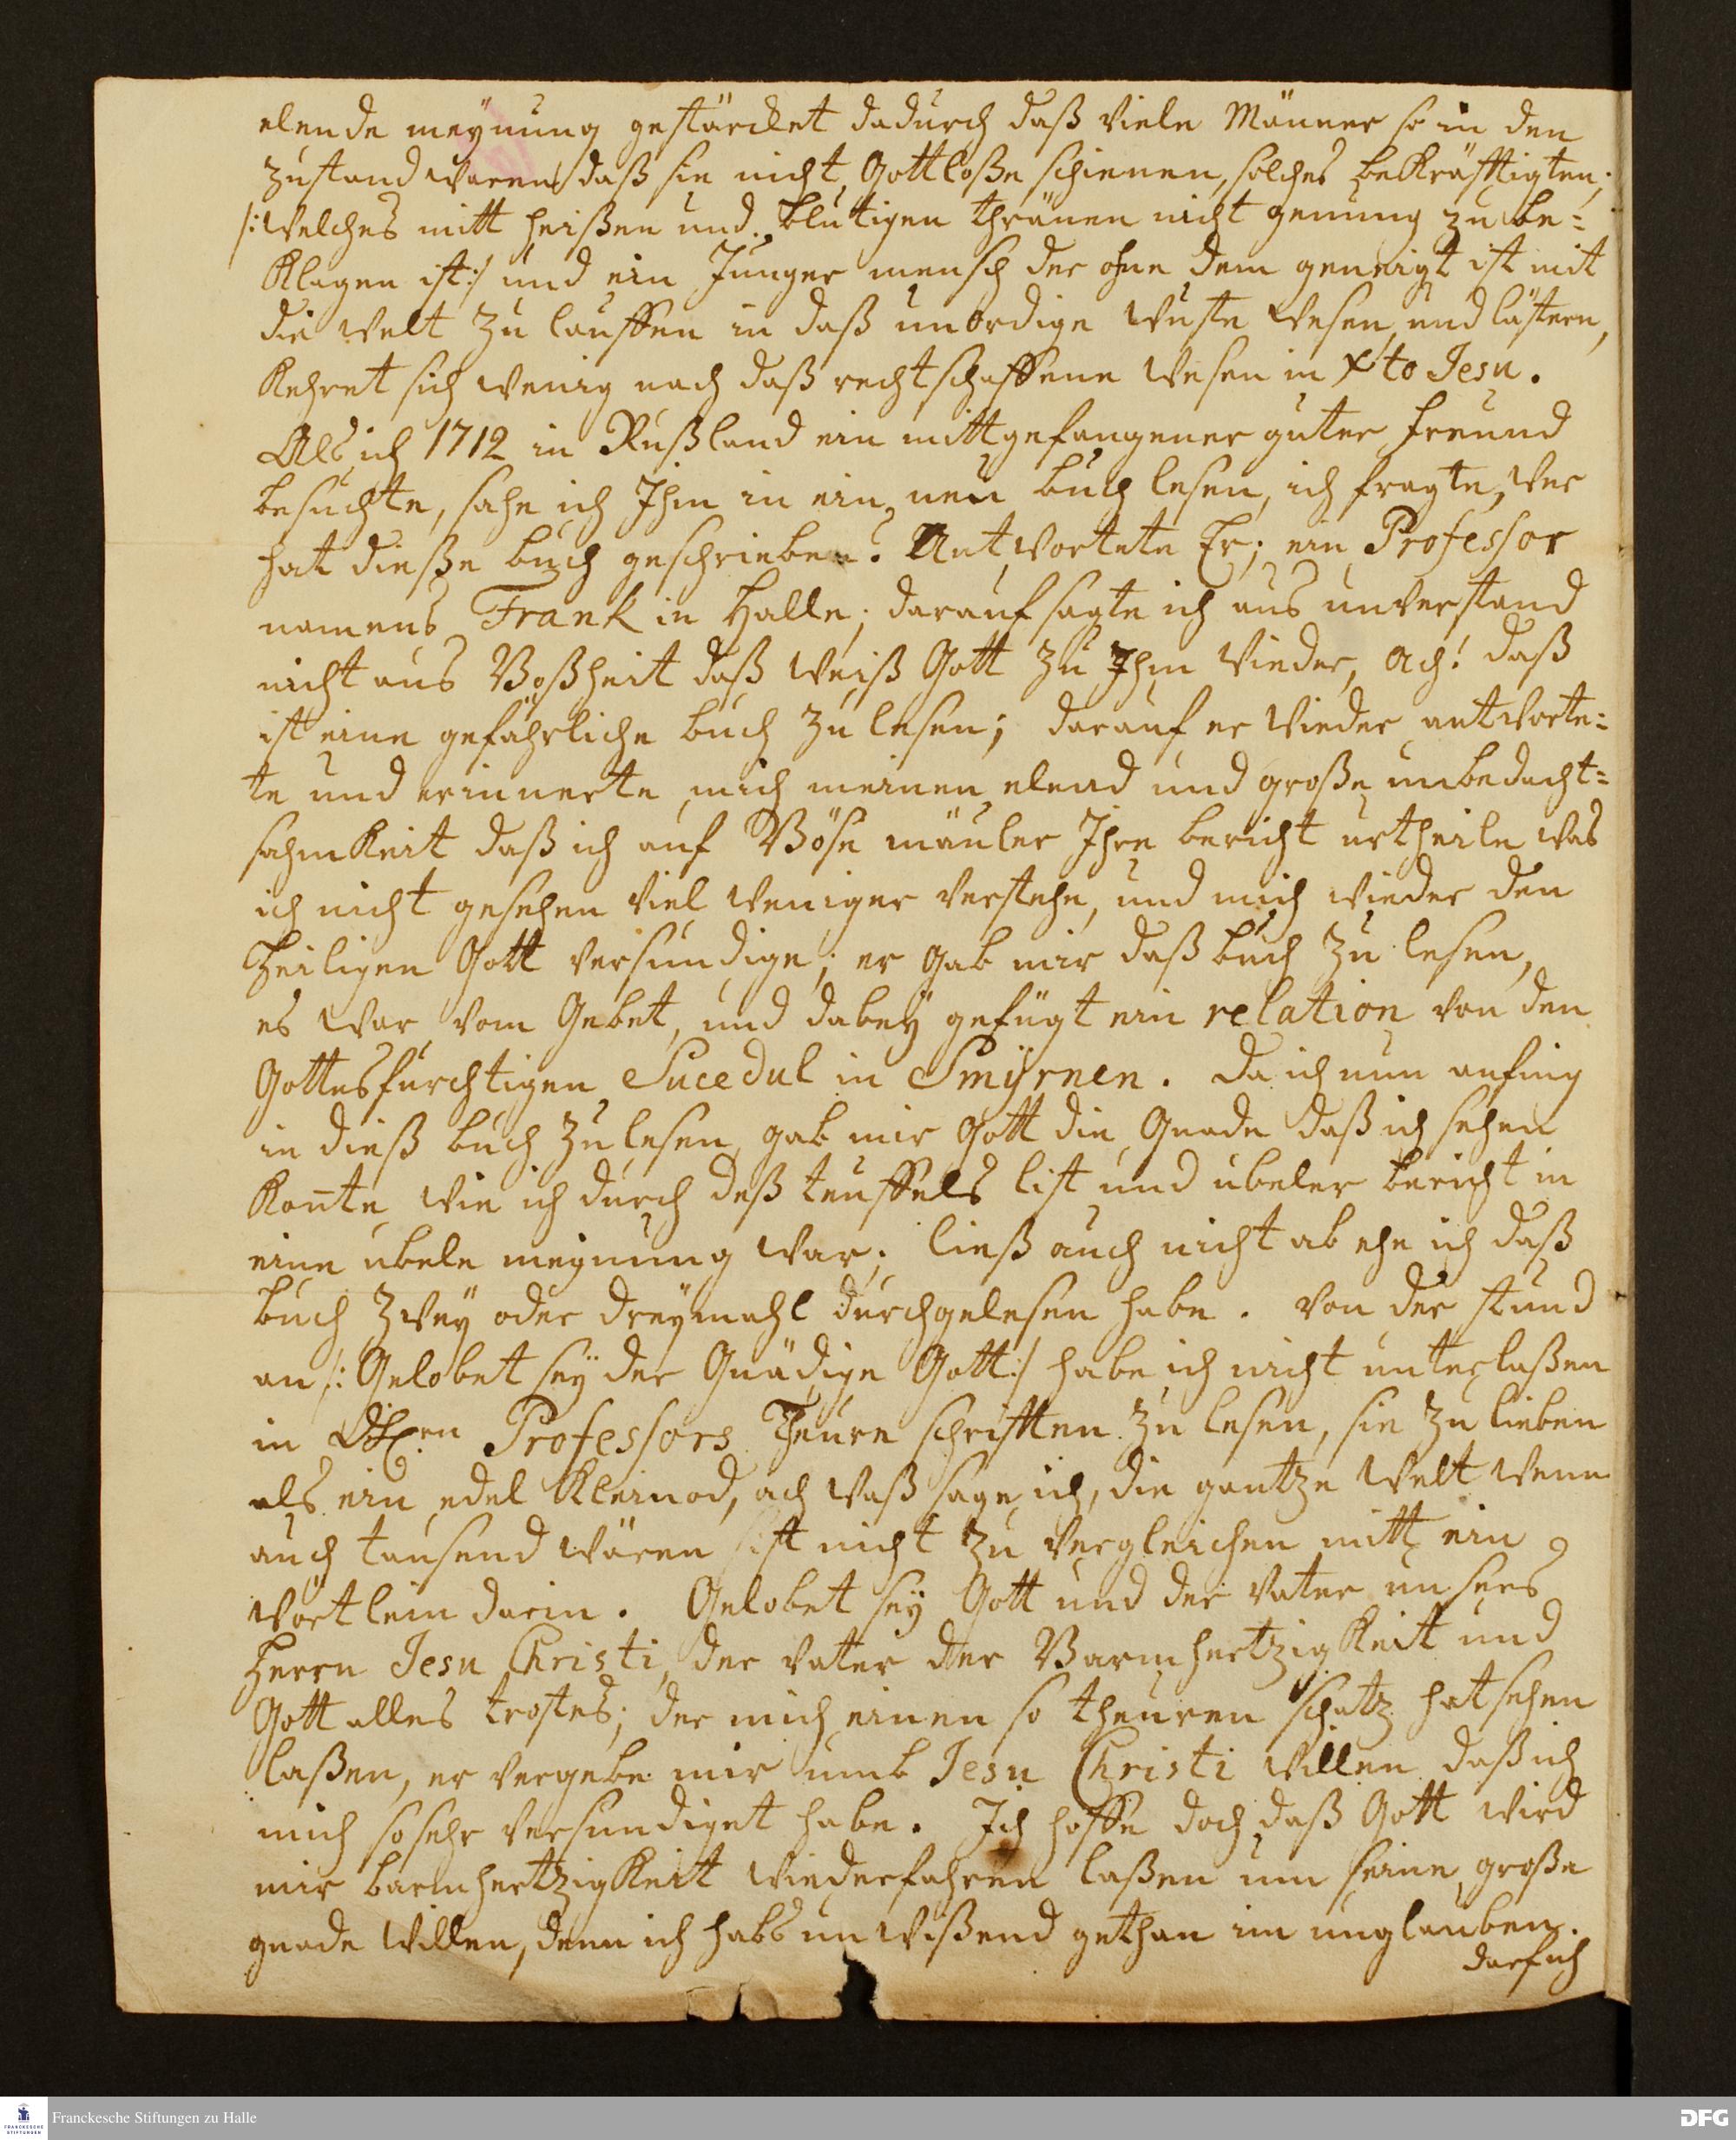 elende meÿnung gestärcket dadurch daß viele Männer so in den
zustand waren daß sie nicht Gottloße schienen, solches bekräfftigten;
/: welches mitt heißen und blutigen thränen nicht genung zu be=
klagen ist :/ und ein Junger mensch der ohne dem geneigt ist mit
die welt zu lauffen in daß unordige wüste wesen und lästern,
kehret sich wenig nach daß rechtschaffene wesen in Xto Jesu.
Als ich 1712 in Rußland ein mittgefangener guter freund
besuchte, sahe ich Ihm in ein neu buch lesen, ich fragte, wer
hat dieße buch geschrieben? Antwortete Er; ein Professor
namens Frank in Halle; darauf sagte ich aus unverstand
nicht aus Boßheit daß weiß Gott zu Ihm wieder, ach! daß
ist eine gefährliche buch zu lesen; darauf er wieder antworte=
te und erinnerte mich meinen elend und große unbedacht=
sahmkeit daß ich auf Böse mäuler Ihre bericht urtheile was
ich nicht gesehen viel weniger verstehe, und mich wieder den
Heiligen Gott versundige; er gab mir daß buch zu lesen,
es war vom Gebet, und dabeÿ gefügt ein relation von den
Gottesfurchtigen Sucedul in Smÿrnen. Da ich nun anfing
in dieß buch zu lesen, gab mir Gott die Gnade daß ich sehen
konte wie ich durch deß teuffels list und ubeler bericht in
eine ubele meynung war; ließ auch nicht ab ehe ich daß
buch zweÿ oder dreÿmahl durchgelesen habe. Von der stund
an /: Gelobet seÿ der Gnädige Gott :/ habe ich nicht unterlaßen
in Professors Theure schrifften zu lesen, sie zu lieben
als ein edel kleinod, ach waß sage ich, die gantze welt wenn
auch tausend wären ist nicht zu vergleichen mitt ein
wörtlein darin. Gelobet seÿ Gott und der vater unsers
Herrn Jesu Christi, der vater der Barmhertzigkeit und
Gott alles trostes; der mich einen so theuren schatz hat sehen
laßen, er vergebe mir umb Jesu Christi willen daß ich
mich so sehr versundiget habe. Ich hoffe doch daß Gott wird
mir barmhertzigkeit wiederfahren laßen um seine große
gnade willen, denn ich habs unwißend gethan im unglauben.
darf ich
Franckesche Stiftungen zu Halle
FRANCKESCHE STIFTUNGEN
DFG